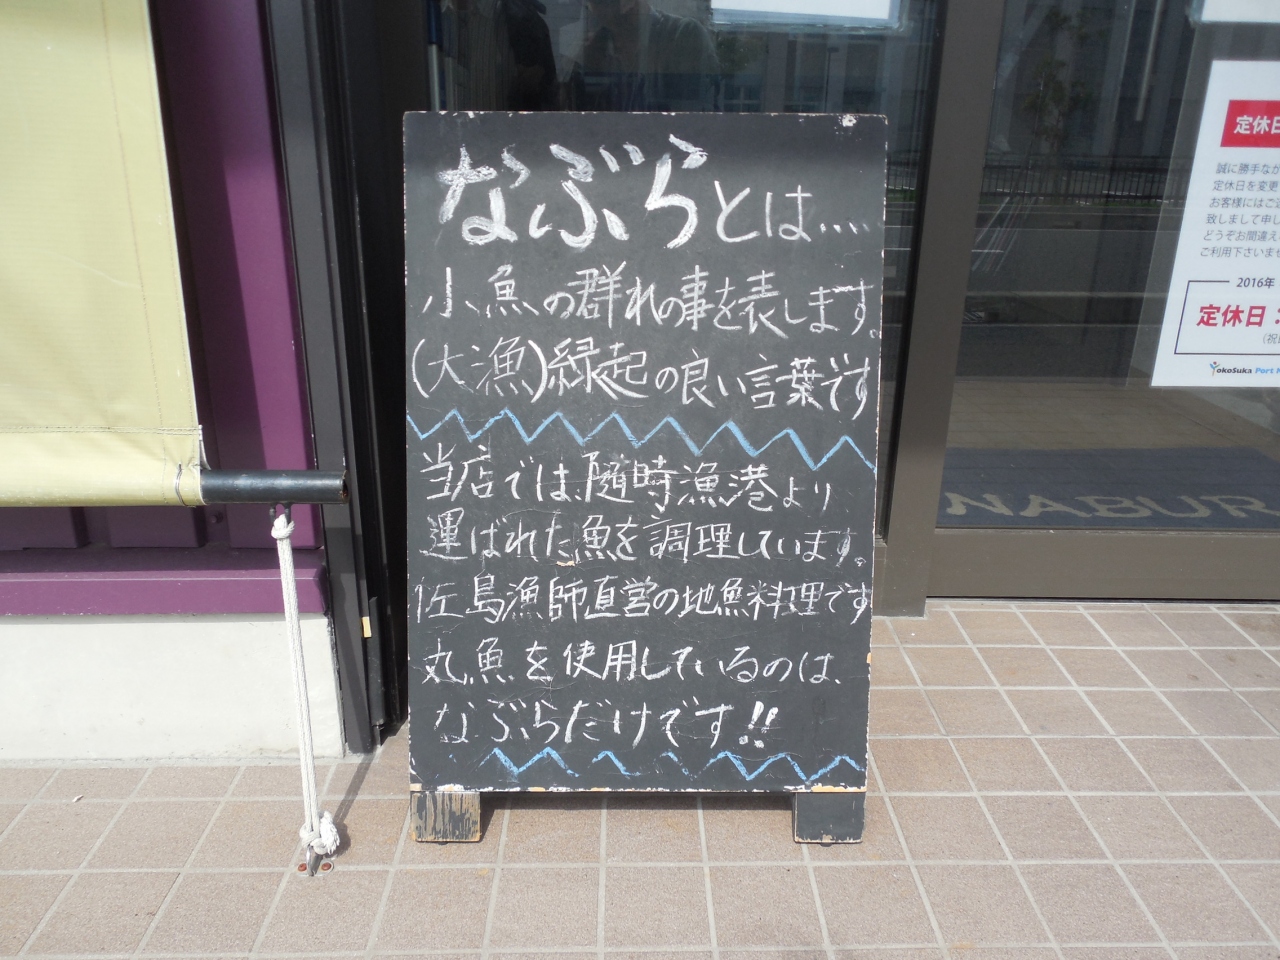 なぶらとは....
小魚の群れの事を表します。
(大漁)縁起の良い言葉です
当店では、随時漁港より
運ばれた魚を調理しています。
佐島漁師直営の地魚料理です
丸魚を使用しているのは、
なぶらだけです!!
定休日
誠に勝手なが
定休日を変更
お客様にはご
致しまして申し
どうぞお間違え
ご利用下さいませ
2016年
定休日:
(祝
YokoSuka Port M
NABUR